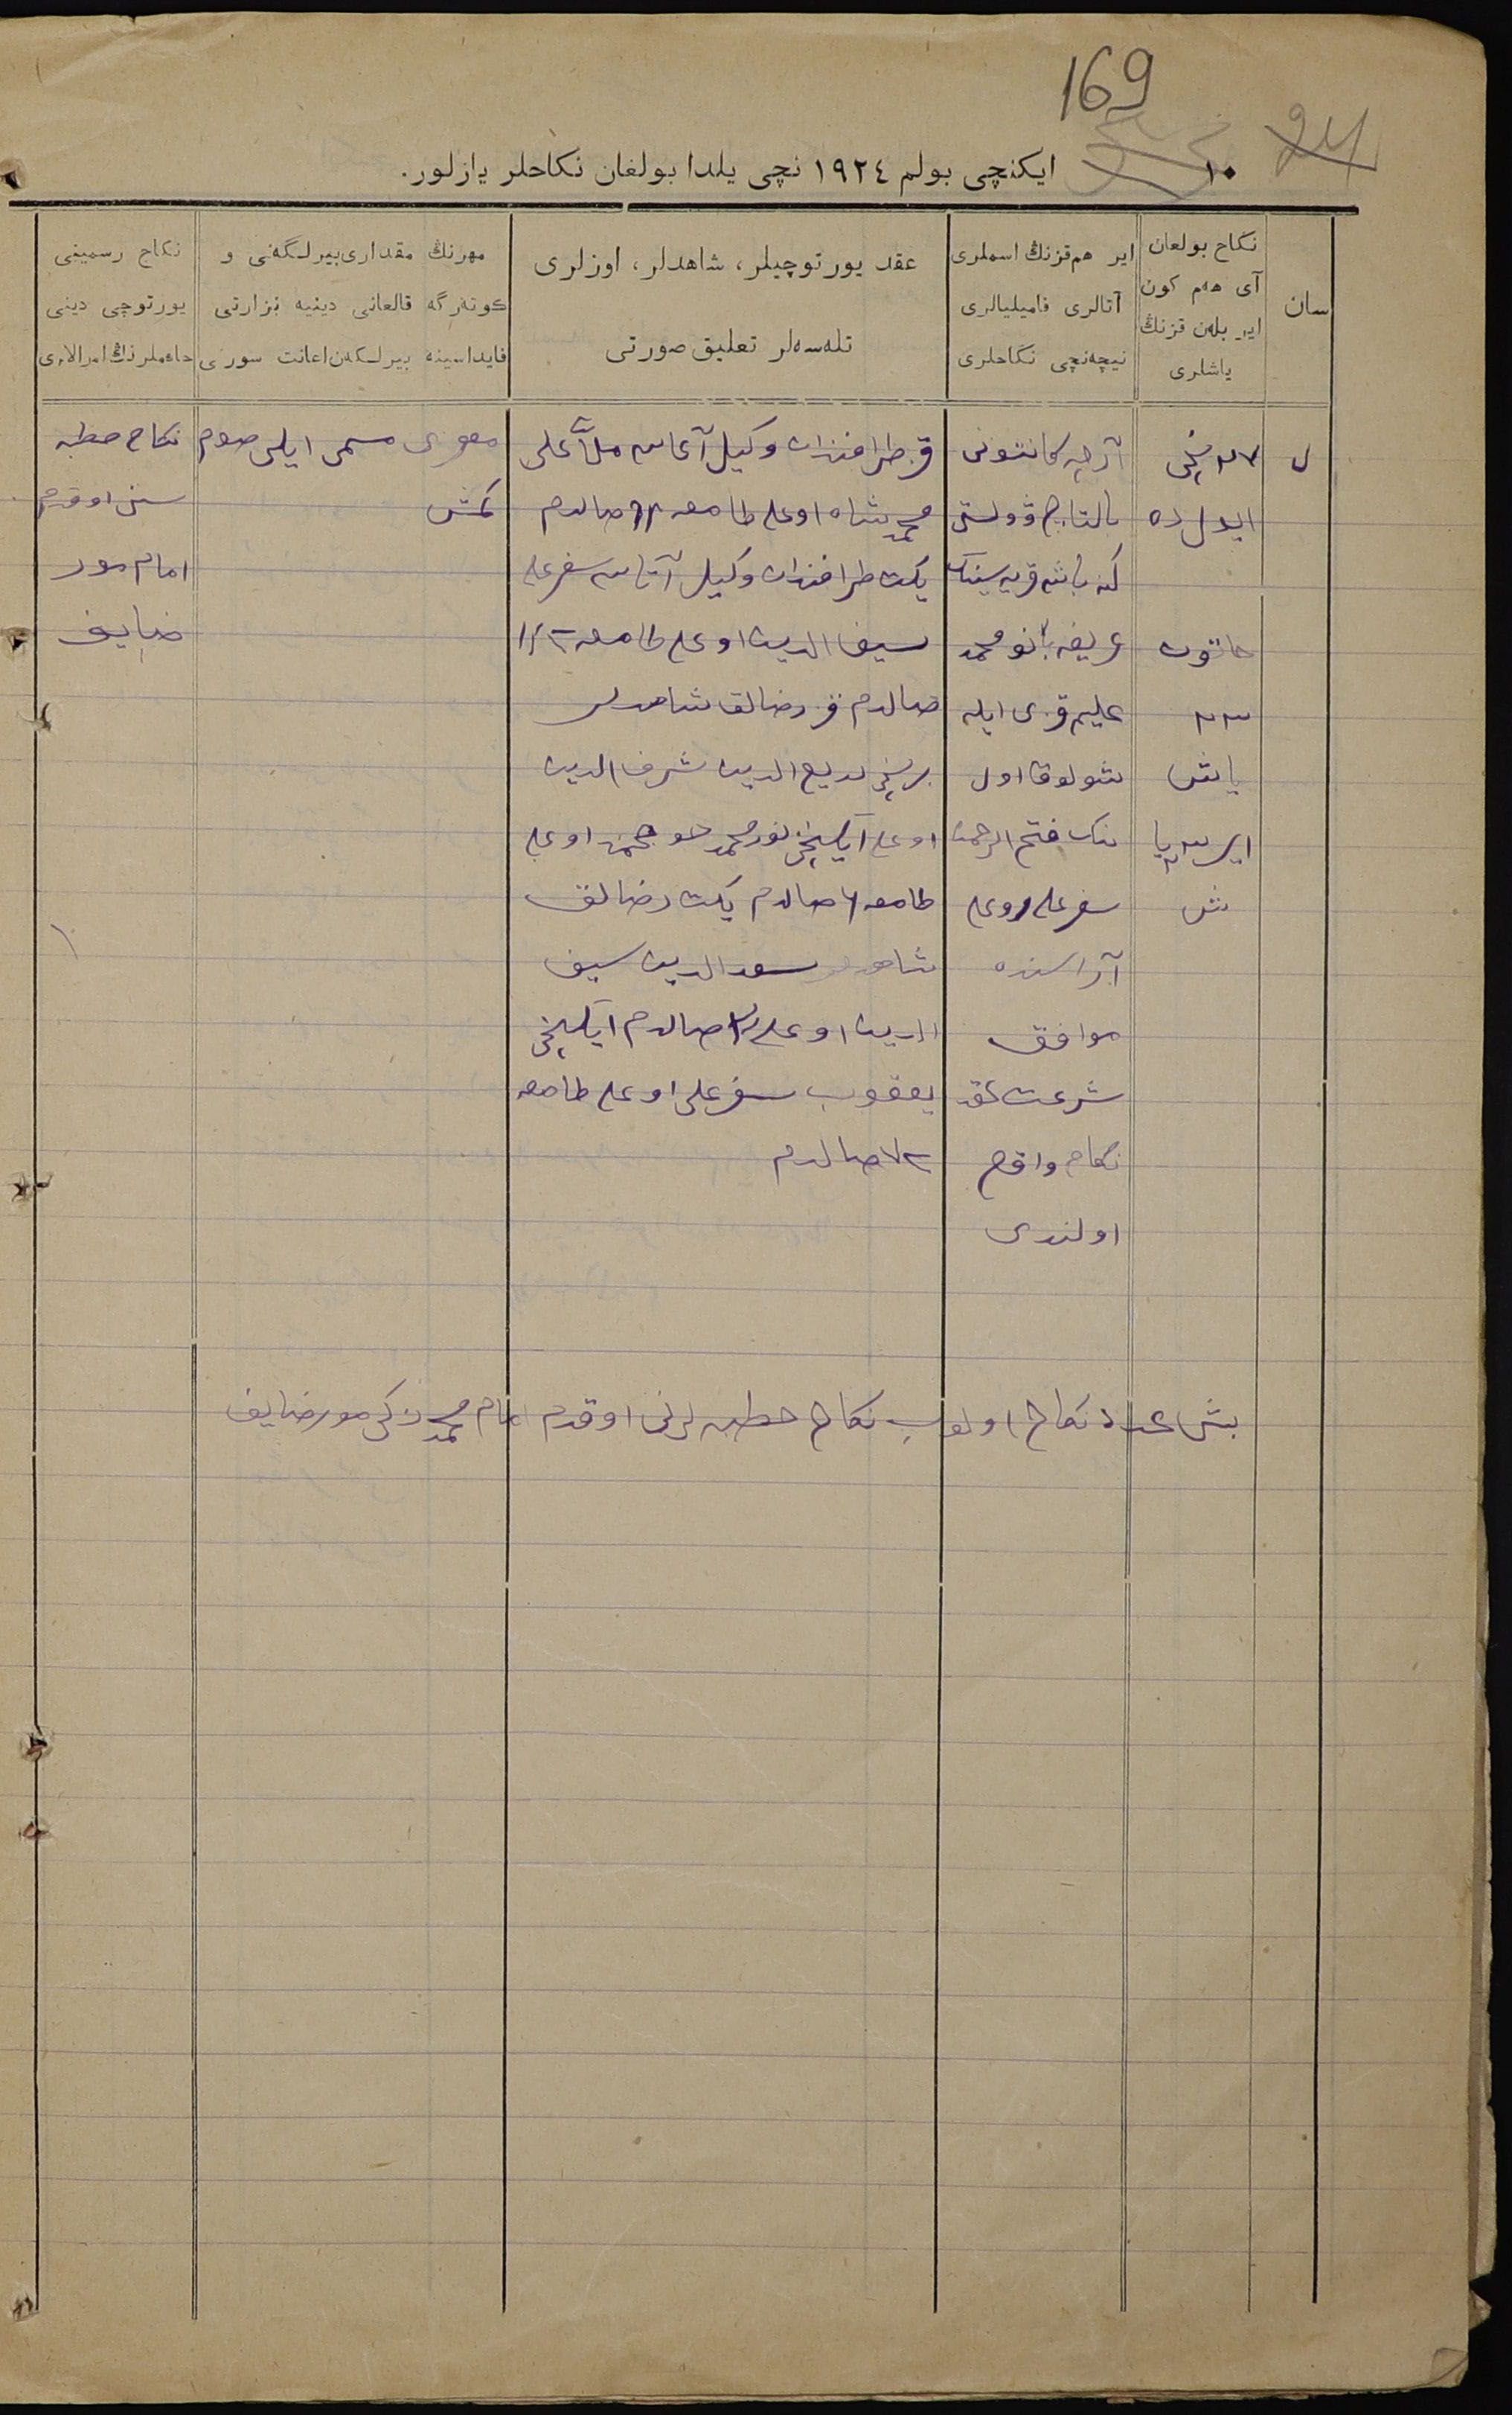 169
24
١٠ ایکنچی بولم ١٩٢٤ نچی یلدا بولغان نکاحلر یازلور.
سان
نکاح بولغان
آی هم کون
ایر بلەن قزنڭ
یاشلری
ایر هم قزنڭ اسملری
آتالری فامیلیالری
نیچەنچی نکاحلری
عقد یورتوچیلر، شاهدلر، اوزلری
تلەسەلر تعلیق صورتی
مهرنڭ مقداری بیرلگەنی و
كوتەرگه قالغانی دینیه نزارتی
فایداسینه بیرلگەن اعانت سورتی
نکاح رسمینی
یورتوچی دینی
خادملرنڭ امضالاری
٢٧ نچی
ایول ده
خاتون
٢٣
یاش
ایر ٢٣ یا
ش
آرچه کانتونی
بالتاچ وولستی
باش قریه سینک
عریفه بانو محمد
علیم قزی ایله
شولوق اول
ننک فتح الرحمن
سفرعلی اوغلی
آراسنده
موافق
شرعت عقد
نکاح واقع
اولندی
قز طرافندان وکیل آغاسی ملا علی
محمدشاه اوغلی طامغه صالدم
یکت طرافندان وکیل آتاسی سفرعلی
سیف الدین اوغلی طامغه
صالدم قز رضالق شاهدلر
برنچی بدیع الدین شرف الدین
اوغلی ایکنچی نورمحمد اوغلی
طامغه صالدم یکت رضالق
شاهدلر سعد الدین سیف
الدین اوغلی صالدم ایکنچی
یعقوب سفرعلی اوغلی طامغه
صالدم
مهری مسمی ایلی صوم
کمش
نکاح خطبه
سنی اوقدم
امام مور
ضایف
بش عدد نکاح اولوب نکاح خطبه لرنی اوقدم امام محمد زکی مورضایف